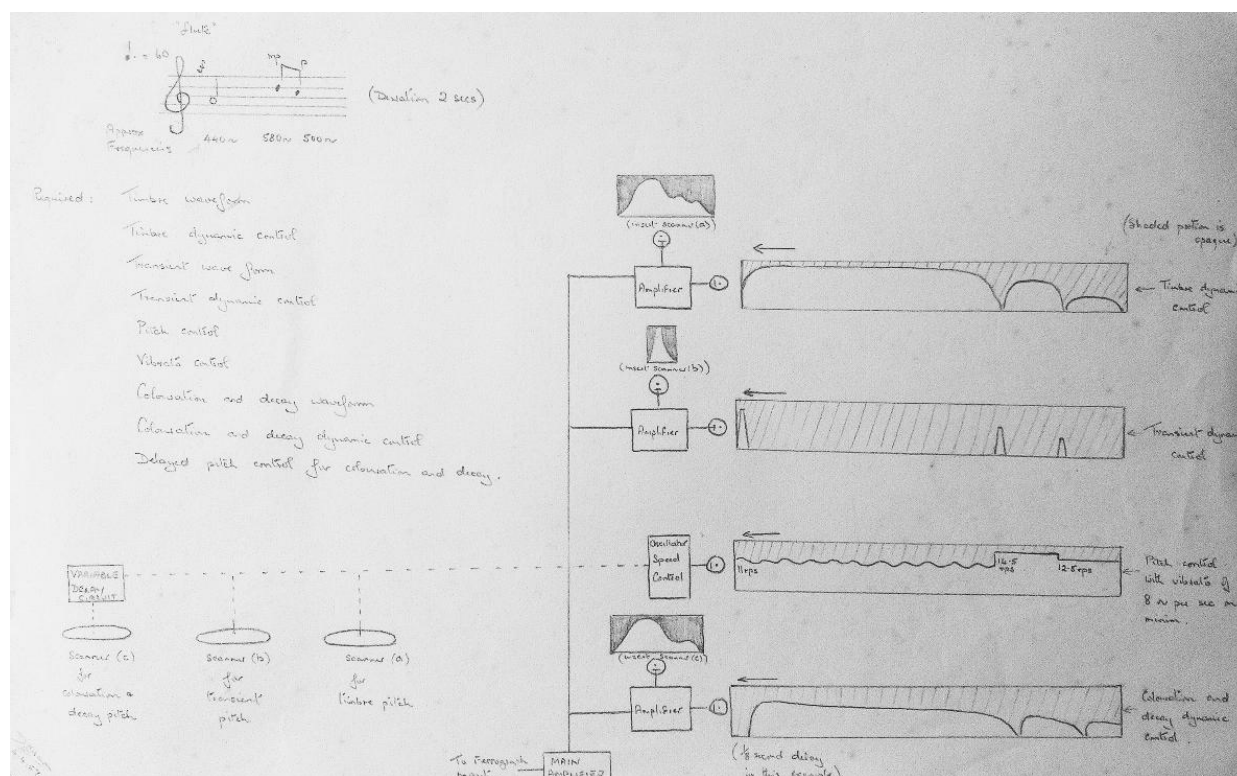 "flute"
♩. = 60
mp p
(Duration 2 secs)
Approx
Frequencies
440~ 580~ 500~
Required: Timbre waveform
Timbre dynamic control
Transient wave form
Transient dynamic control
Pitch control
Vibrato control
Colouration and decay waveform
Colouration and decay dynamic control
Delayed pitch control for colouration and decay.
(insert scanner (a))
(Shaded portion is
opaque)
Amplifier
Timbre dynamic
control
(insert scanner (b))
Amplifier
Transient dynamic
control
Oscillator
Speed
Control
11 rps
14.5
rps
12.5 rps
Pitch control
with vibrato of
8 ~ per sec on
minim.
VARIABLE
DELAY
CIRCUIT
Scanner (c)
for
colouration &
decay pitch
Scanner (b)
for
transient
pitch
Scanner (a)
for
timbre pitch
(insert scanner (c))
Amplifier
Colouration and
decay dynamic
control.
(1/8 second delay
in this example)
To Ferrograph
input
MAIN
AMPLIFIER